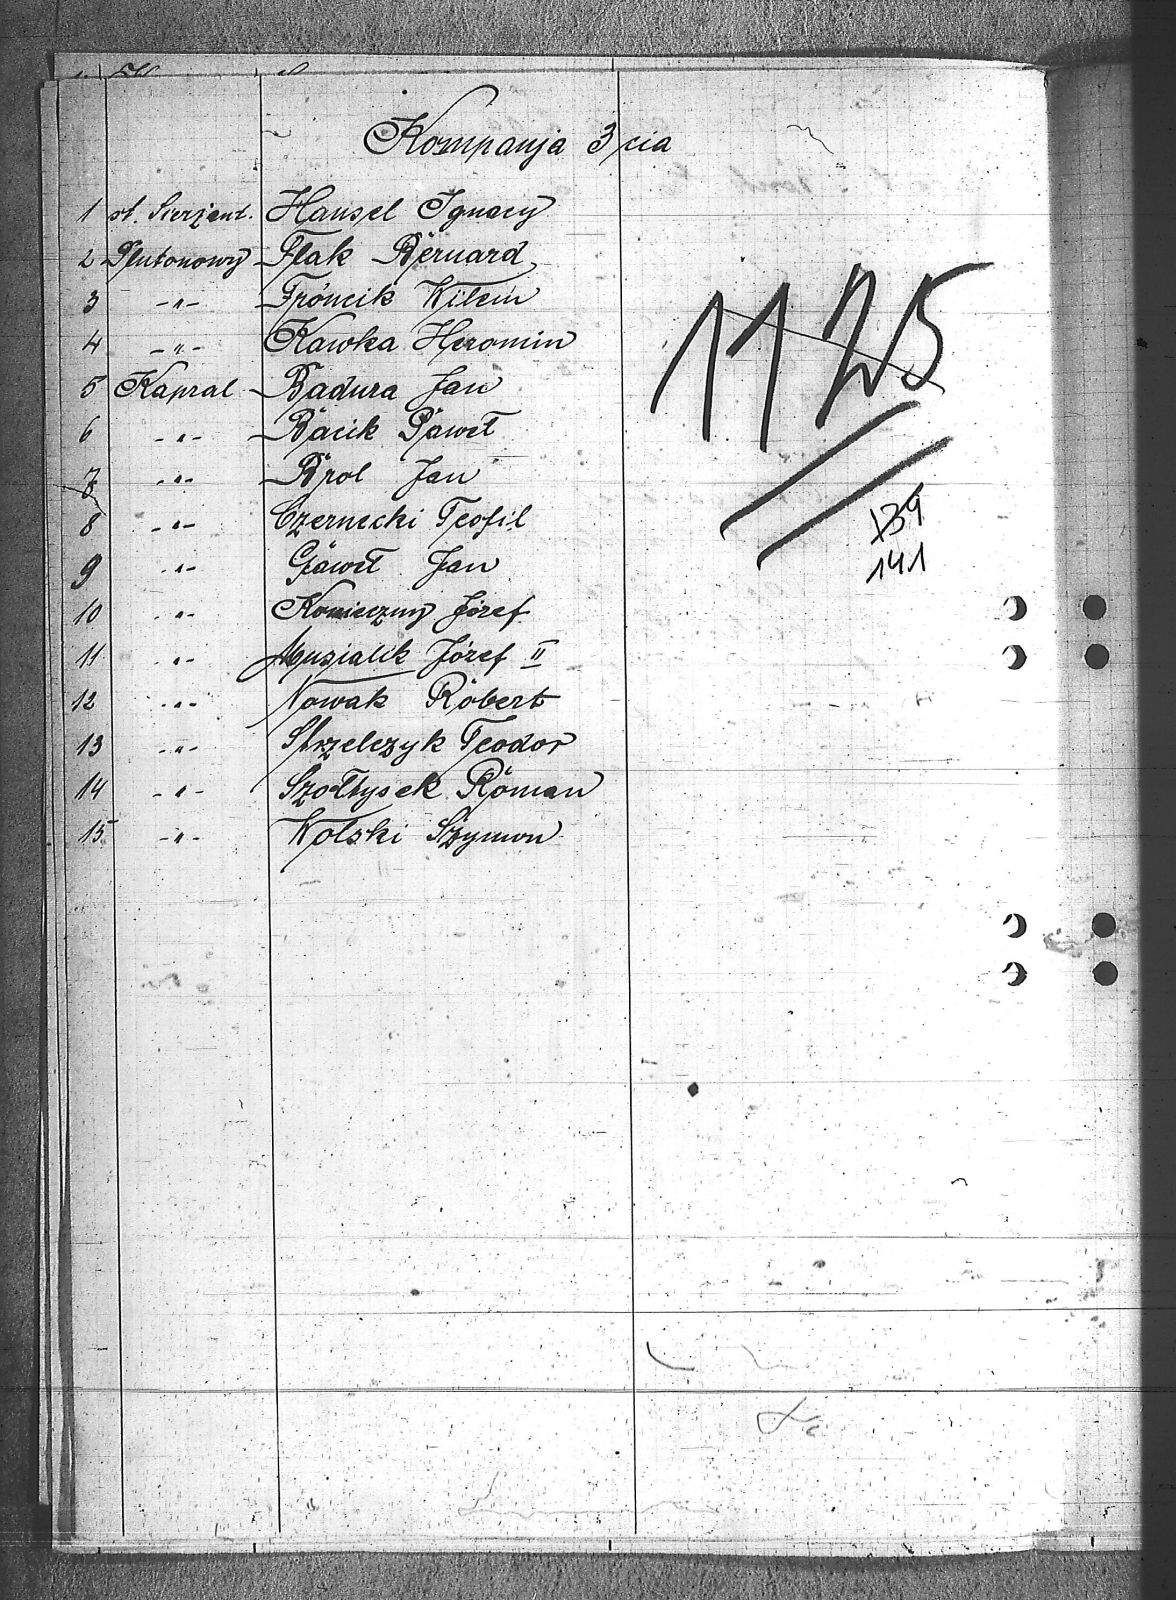 Kompanja 3 cia
1 st. Sierżent. Hansel Ignacy
2 Plutonowy Flak Bernard
3 -"- Frōncik Wilem
4 -"- Kawka Heromin
5 Kapral Badura Jan
6 -"- Bacik Paweł
7 -"- Brol Jan
8 -"- Czernecki Teofil
9 -"- Gaweł Jan
10 -"- Konieczny Józef
11 -"- Musialik Józef II
12 -"- Nowak Robert
13 -"- Strzelczyk Teodor
14 -"- Szołtysek Roman
15 -"- Wolski Szymon
1125
139
141